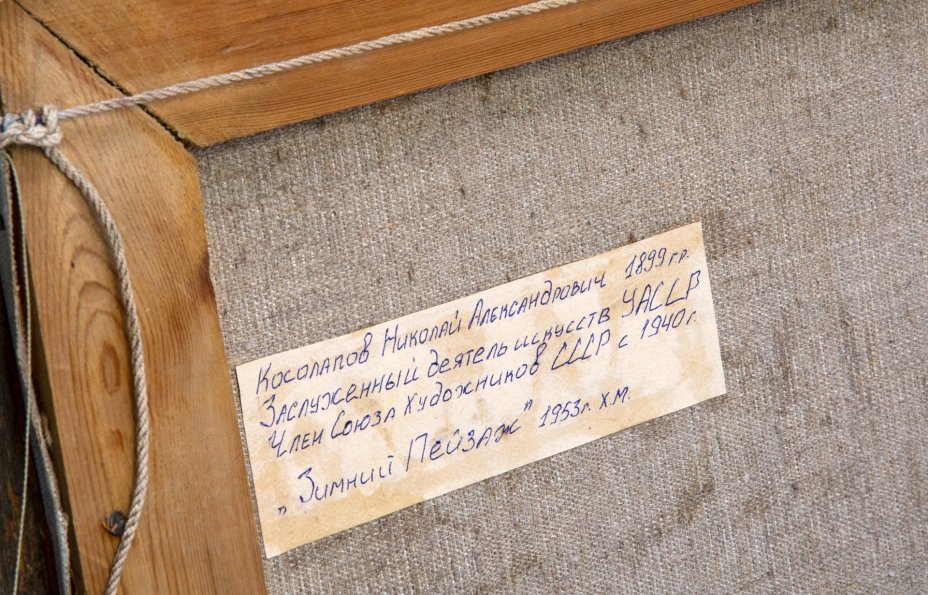 Косолапов Николай Александрович 1899 г.р.
Заслуженный деятель искусств УАССР
Член Союза Художников СССР с 1940 г.
„Зимний Пейзаж" 1953 г. х.м.